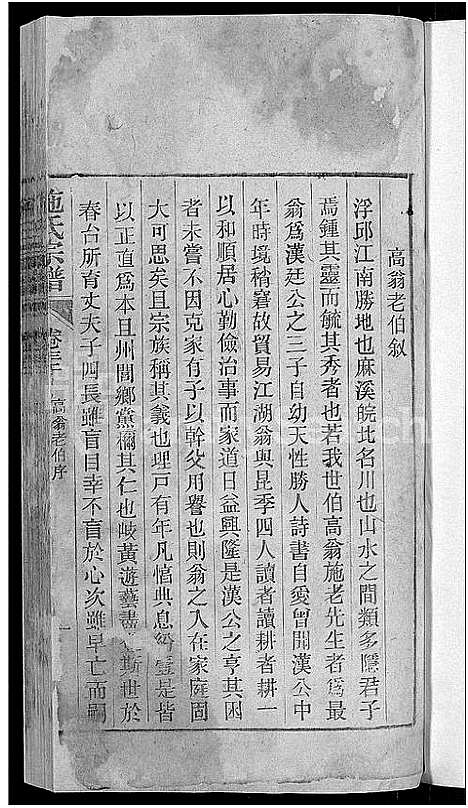 高翁老伯叙
浮邱江南勝地也麻溪皖北名川也山水之間類多隱君子
焉鍾其靈而毓其秀者也若我世伯高翁施老先生者爲最
翁爲漢廷公之三子自幼天性勝人詩書自愛曾聞漢公中
年時境稍窘故貿易江湖翁與昆季四人讀者讀耕者耕一
以和順居心勤儉治事而家道日益興隆是漢公之亨其困
者未嘗不因克家有子以幹父用譽也則翁之入在家庭固
大可思矣且宗族稱其義也理戸有年凡愭典息皆是皆
以正直爲本且州閭鄉黨稱其仁也岐黃遊藝世於
春台所育丈夫子四長雖盲目幸不盲於心次雖早亡而嗣
施氏宗譜
卷三十
高翁老伯序
一